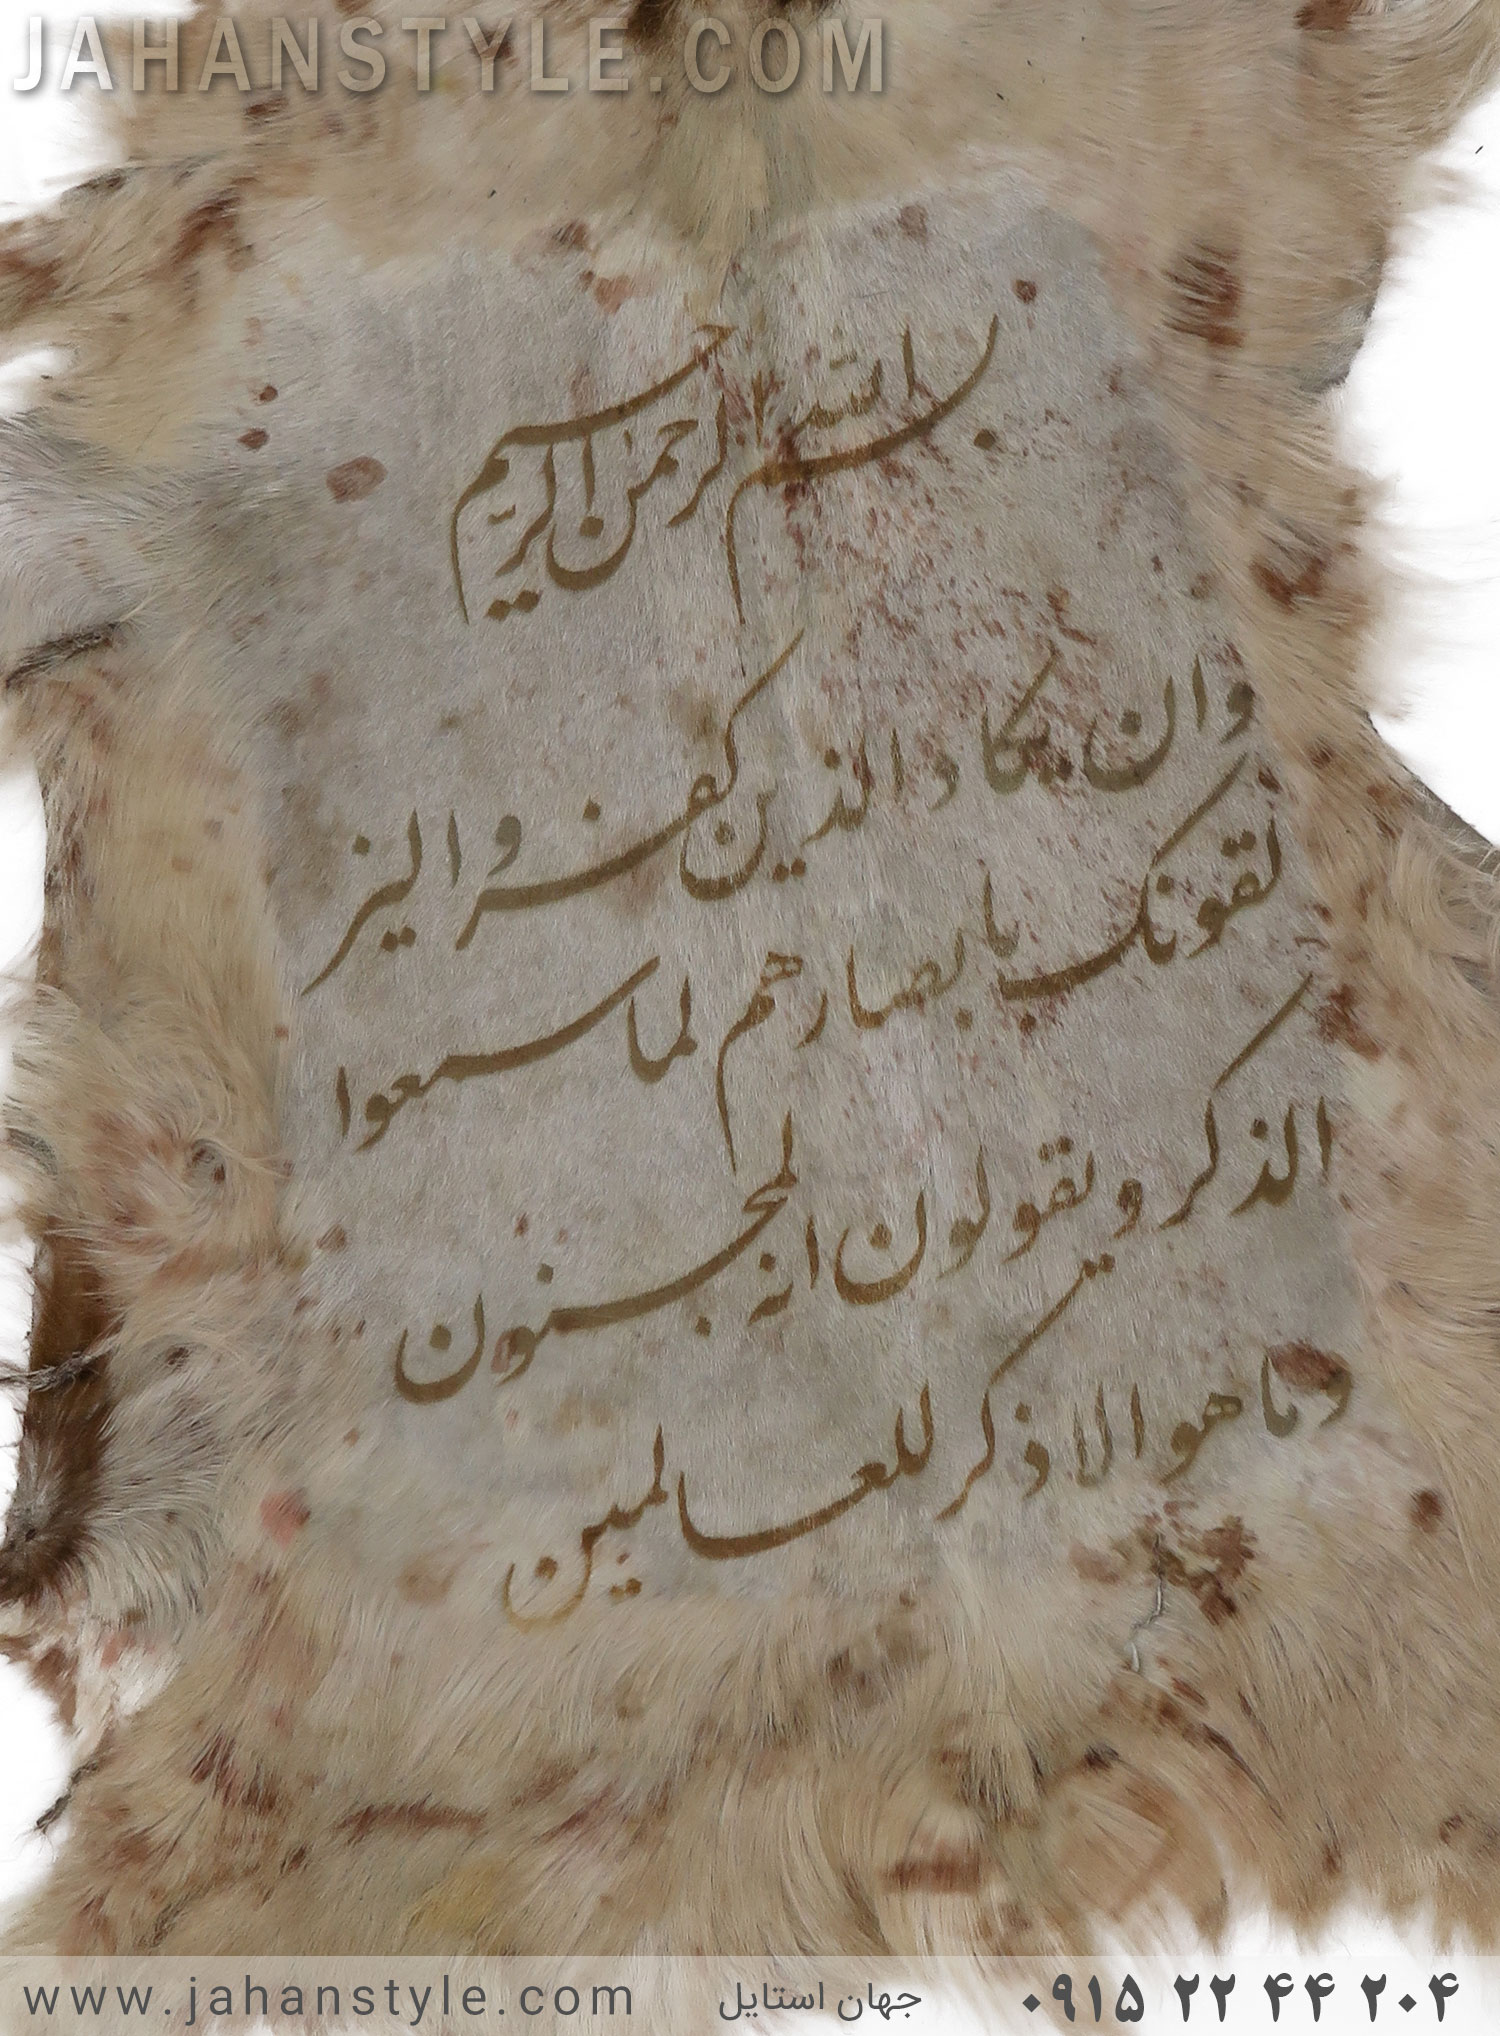 JAHANSTYLE.COM
بسم الله الرحمن الرحیم
وان یکاد الذین کفروا لیز
لقونک بابصارهم لما سمعوا
الذکر و یقولون انه لمجنون
وما هو الا ذکر للعالمین
www.jahanstyle.com جهان استایل ۰۹۱۵ ۲۲ ۴۴ ۲۰۴